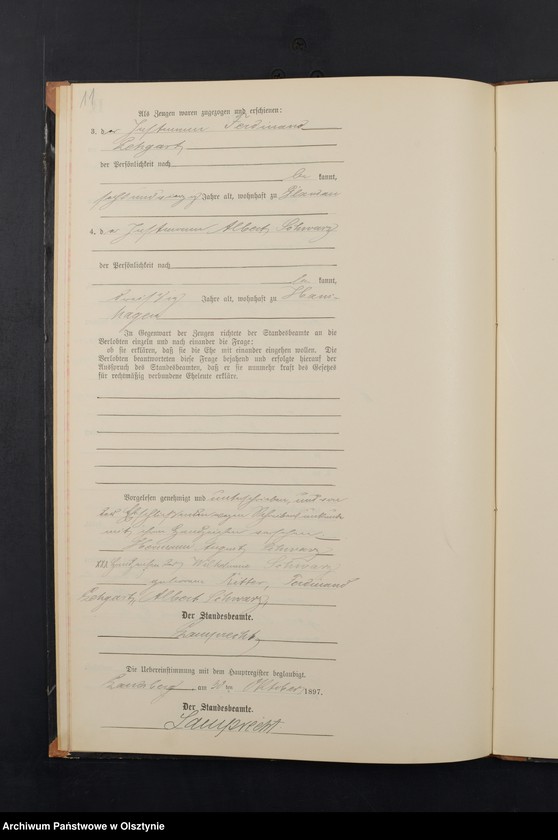 11.
Als Zeugen waren zugezogen und erschienen:
3. der Instmann Ferdinand
der Persönlichkeit nach
be kannt,
Jahre alt, wohnhaft zu
4. der Instmann Albert Schwarz
der Persönlichkeit nach
be kannt,
dreißig Jahre alt, wohnhaft zu
hagen
In Gegenwart der Zeugen richtete der Standesbeamte an die
Verlobten einzeln und nach einander die Frage:
ob sie erklären, daß sie die Ehe mit einander eingehen wollen. Die
Verlobten beantworteten diese Frage bejahend und erfolgte hierauf der
Ausspruch des Standesbeamten, daß er sie nunmehr kraft des Gesetzes
für rechtmäßig verbundene Eheleute erkläre.
Vorgelesen genehmigt und unterschrieben, und von
der wegen
mit ihrem Handzeichen versehen.
Hermann August Schwarz
XXX Handzeichen der Wilhelmine Schwarz
geborene Ritter, Ferdinand
Albert Schwarz
Der Standesbeamte.
Lamprecht
Die Uebereinstimmung mit dem Hauptregister beglaubigt.
Landsberg am Oktober 1897.
Der Standesbeamte.
Lamprecht
Archiwum Państwowe w Olsztynie